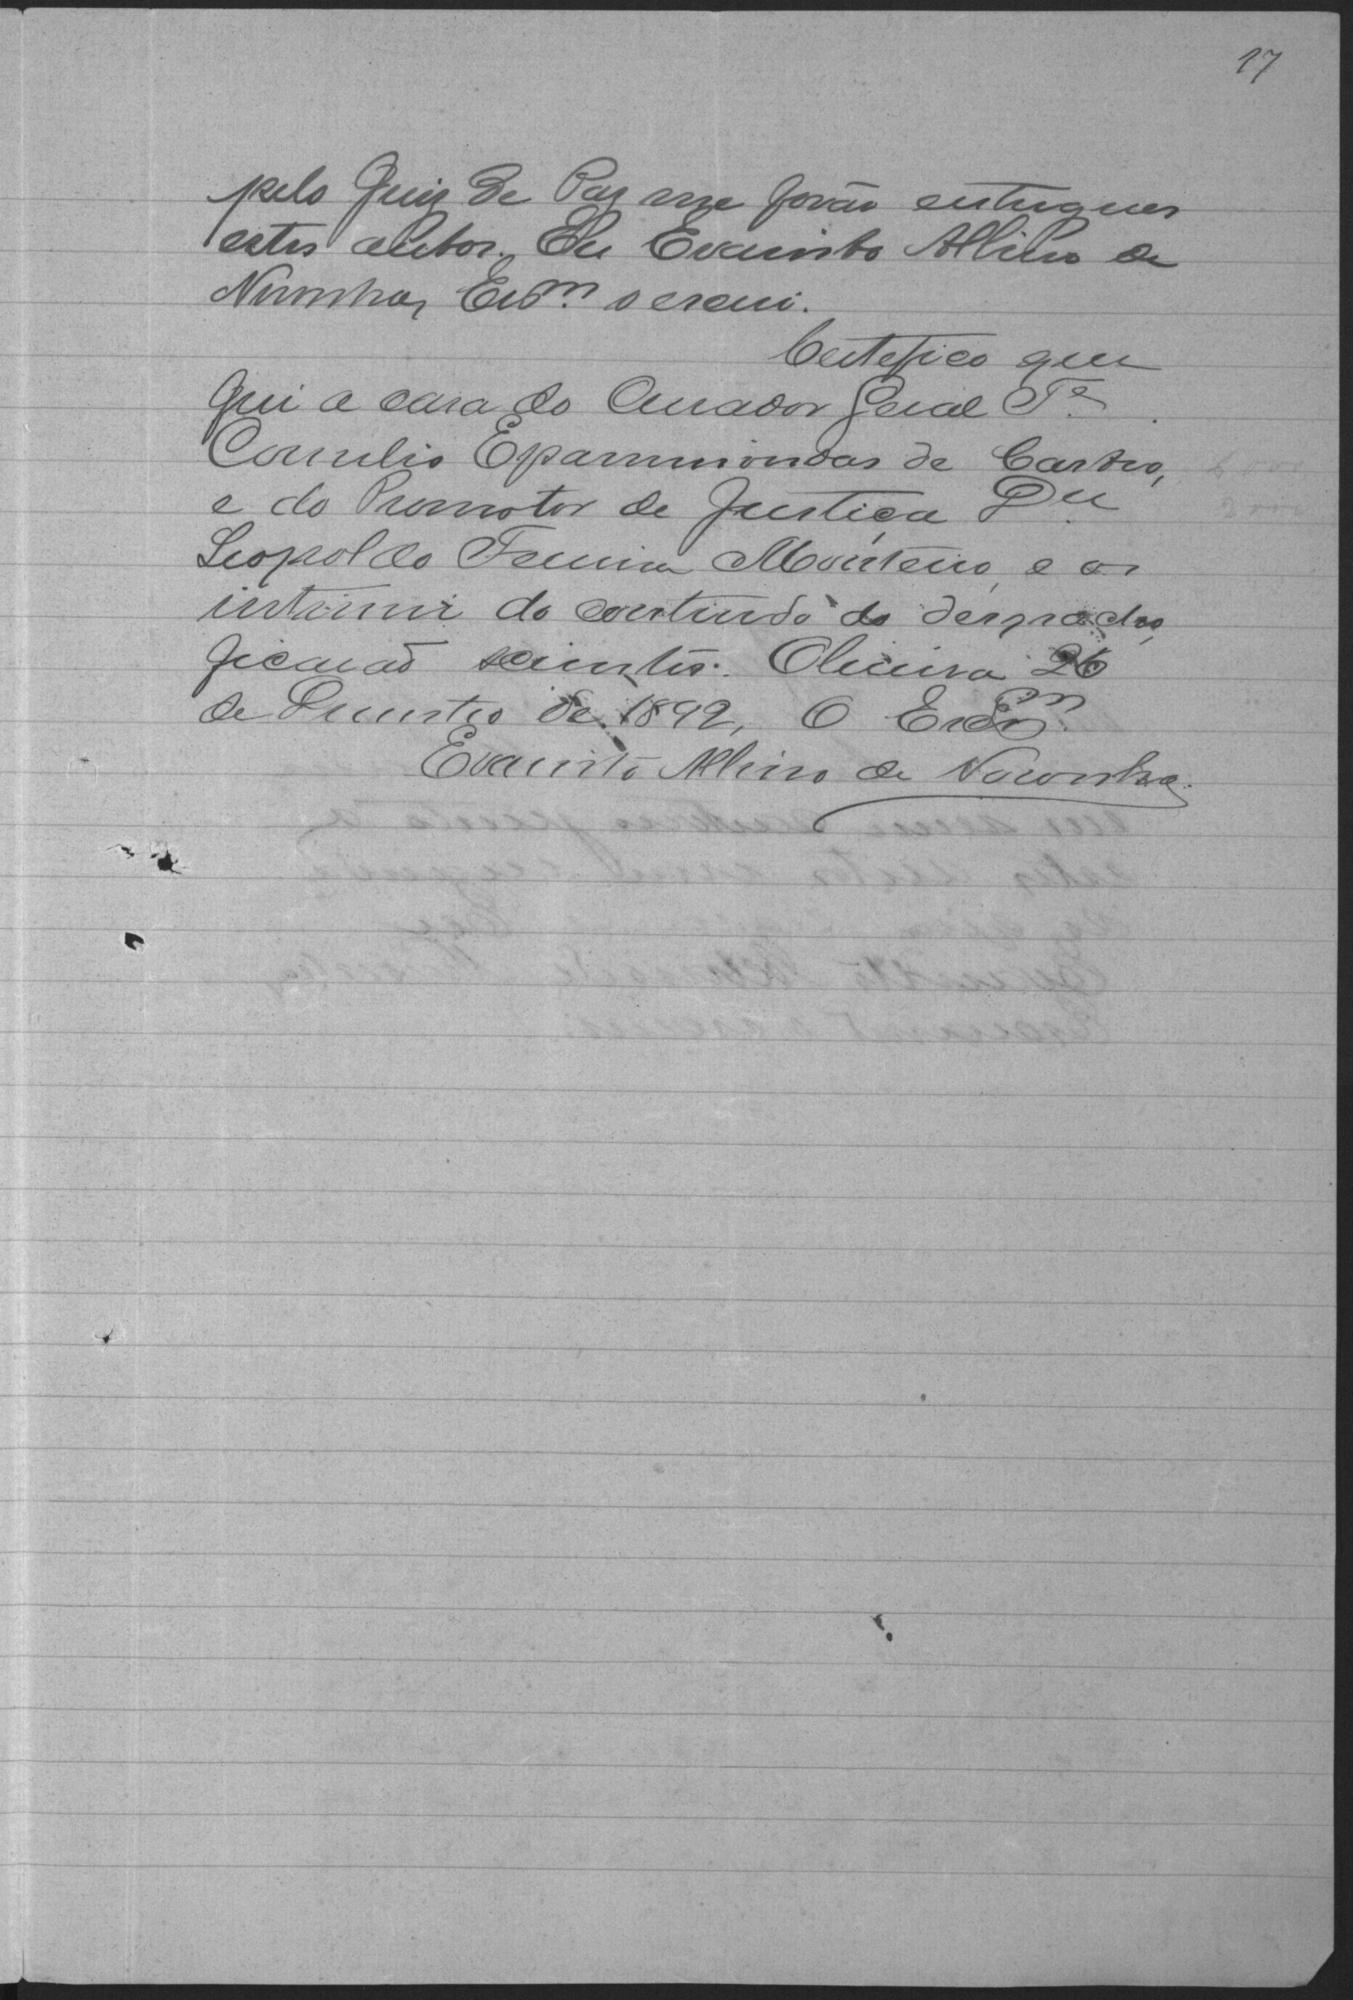 17
pelo Juiz de Paz me forão entregues
estes autos. Eu Evaristo Albino de
Noronha, Escm. o escrevi.
Certefico que
fui a casa do Curador Geral Te.
Cornelio Epaminondas de Castro,
e do Promotor de Justiça Dr.
Leopoldo Ferreira Monteiro, e os
intimei do contendo do despacho,
ficarão scientes. Oliveira 26
de de 1892, O Escm.
Evaristo Albino de Noronha.